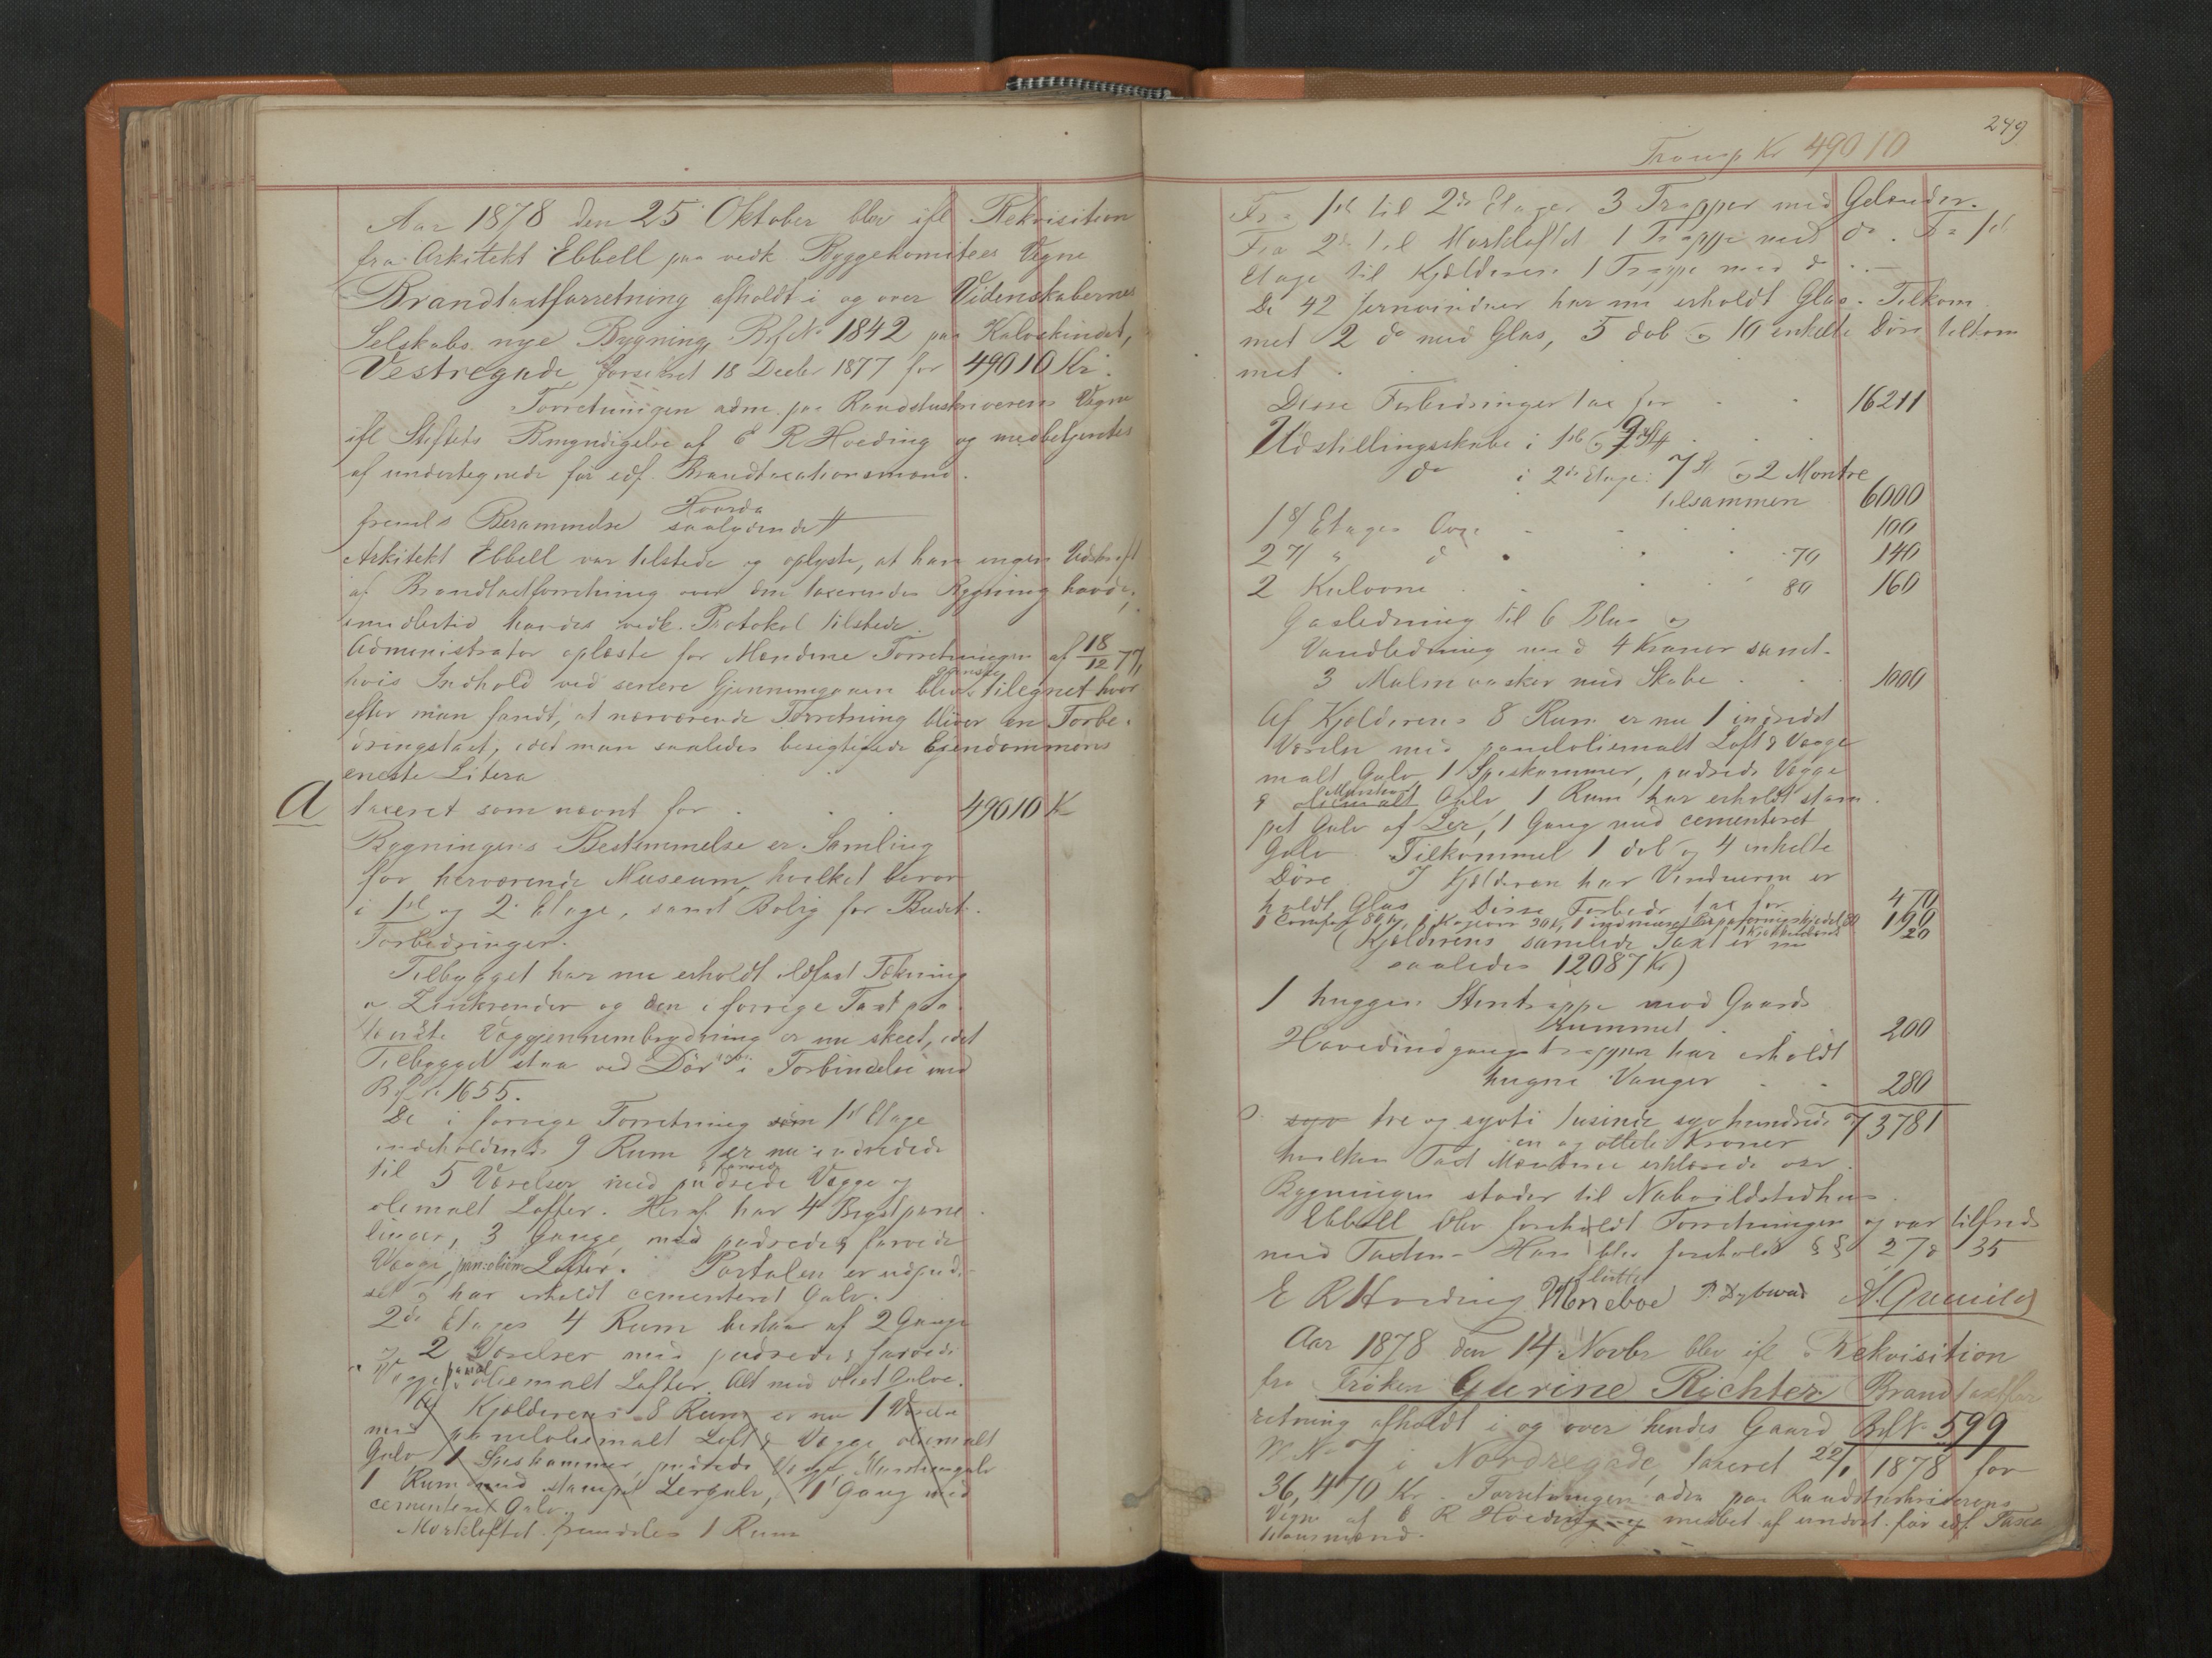 Aar 1878 den 25 Oktober blev ifl Rekvisition
fra Arkitekt Ebbell paa vedk. Byggekomitees Vegne
Brandtaxtforretning afholdt i og over Videnskabernes
Selskabs nye Bygning, Bf No 1842 paa Kalvskindet,
Vestregade, forsikret 18 Decbr 1877 for 49010 Kr.
Forretningen adm. paa Raadstuskriverens Vegne
ifl Stiftets Bemyndigelse af E R Hoeding og medbetjentes
af undertegnede før edf. Brandtaxationsmænd.
fremls Berammelse saalydende #
Hvorda
Arkitekt Ebbell var tilstede og oplyste, at han ingen Udskrift
af Brandtaxtforretning over den taxerendes Bygning havde,
imidlertid havdes vedk. Protokol tilstede.
Administrator oplæste for Mændene Forretningen af 18/12 77,
hvis Indhold ved senere Gjennemgaaen blev ganske tilegnet hvor
efter man fandt, at nærværende Forretning bliver en Forbe-
dringstaxt, idet man saaledes besigtigede Eiendommens
eneste Litera
A taxeret som nævnt for . . . 49010 K
Bygningens Bestemmelse er Samling
for herværende Museum, hvilket bever
i 1ste og 2. Etage, samt Bolig for Budet.
Forbedringer.
Tilbygget har nu erholdt ildfast Tækning
Zinkrender og den i forrige Taxt paa
tænkte Væggjennembrydning er nu skeet, idet
Tilbygget staar ved Dør i Forbindelse med
Bf No 1655.
De i forrige Forretning som 1st Etage
indeholdende 9 Rum er nu indredede
til 5 Værelser med pudsede & farvede Vægge og
oliemalt Lofter. Heraf har 4 Brystpane-
linger, 3 Gange med pudsede & farvede
Vægge, Lofter. Portalen er udpud-
set & har erholdt cementeret Gulv.
2den Etages 4 Rum bestaar af 2 Gange
2 Værelser med pudsede & farvede
Vægge panel oliemalt Lofter. Alt med oliet Gulve.
Af Kjælderens 8 Rum er nu 1 Værelse
med paneloliemalt Loft & Vægge, oliemalt
Gulv, 1 Spiskammer, pudsede Vægge Murstensgulv
1 Rum med stampet Lergulv, 1 Gang med
cementeret Gulv.
Mørkloftet fremdeles 1 Rum
249
Transp Kr 49010
Fra 1st til 2de Etage 3 Trapper med Gelænder.
Fra 2de til Mørkloftet 1 Trappe med do. Fra 1st
Etage til Kjælderen 1 Trappe med do.
De 42 Jernvinduer har nu erholdt Glas. Tilkom
met 2 do med Glas, 5 dob & 10 enkelte Døre tilkom
met.
Disse Forbedringer tax for . . 16211
Udstillingsskabe i 1st
do i 2de Etage: 7 st & 2 Montre
tilsammen 6000
1 st Etages Ovn . . . 100
2 st " d . . . 70 140
2 Kulovne . . . 80 160
Gasledning til 6 Blus og
Vandledning med 4 Kraner samt
3 Malmvasker med Skabe . . 1000
Af Kjælderens 8 Rum er nu 1 indredet
Værelse med paneloliemalt Loft & Vægge
malt Gulv, 1 Spiskammer, pudsede Vægge
& oliemalt Gulv, 1 Rum har erholdt stam
pet Gulv af Ler, 1 Gang med cementeret
Gulv. Tilkommet 1 dob og 4 enkelte
Døre. I Kjælderen har Vinduerne er
holdt Glas. Disse Forbedr tax for 470
1 Komfur 80 Kr, 1 Kogeovn 30 Kr, 1 indmuret 80 190
20
(Kjælderens samlede Taxt er nu
saaledes 12087 Kr)
1 huggen Stentrappe mod Gaards
rummet . . 200
Hovedindgangstrappen har erholdt
hugne Vanger . . 280
syv tre og sytti tusinde syv hundrede 73781
en og ottete Kroner
hvilken Taxt Mændene erklærede
Bygningen støder til Naboildstedhus.
Ebbell blev foreholdt Forretningen og var tilfreds
med Taxten. Han blev foreholdt §§ 27 & 35
Sluttet
E R Hoeding Monseboe P. Dybwad
Aar 1878 den 14 Novbr blev ifl Rekvisition
fra Frøken Gurine Richter Brandtaxtfor
retning afholdt i og over hendes Gaard Bf No 599
M No 7 i Nordregade, taxeret 22/1 1878 for
36,470 Kr. Forretningen adm paa Raadstuskriverens
Vegne af E R Hoeding og medbet af undert. før edf. Taxa
tionsmænd.